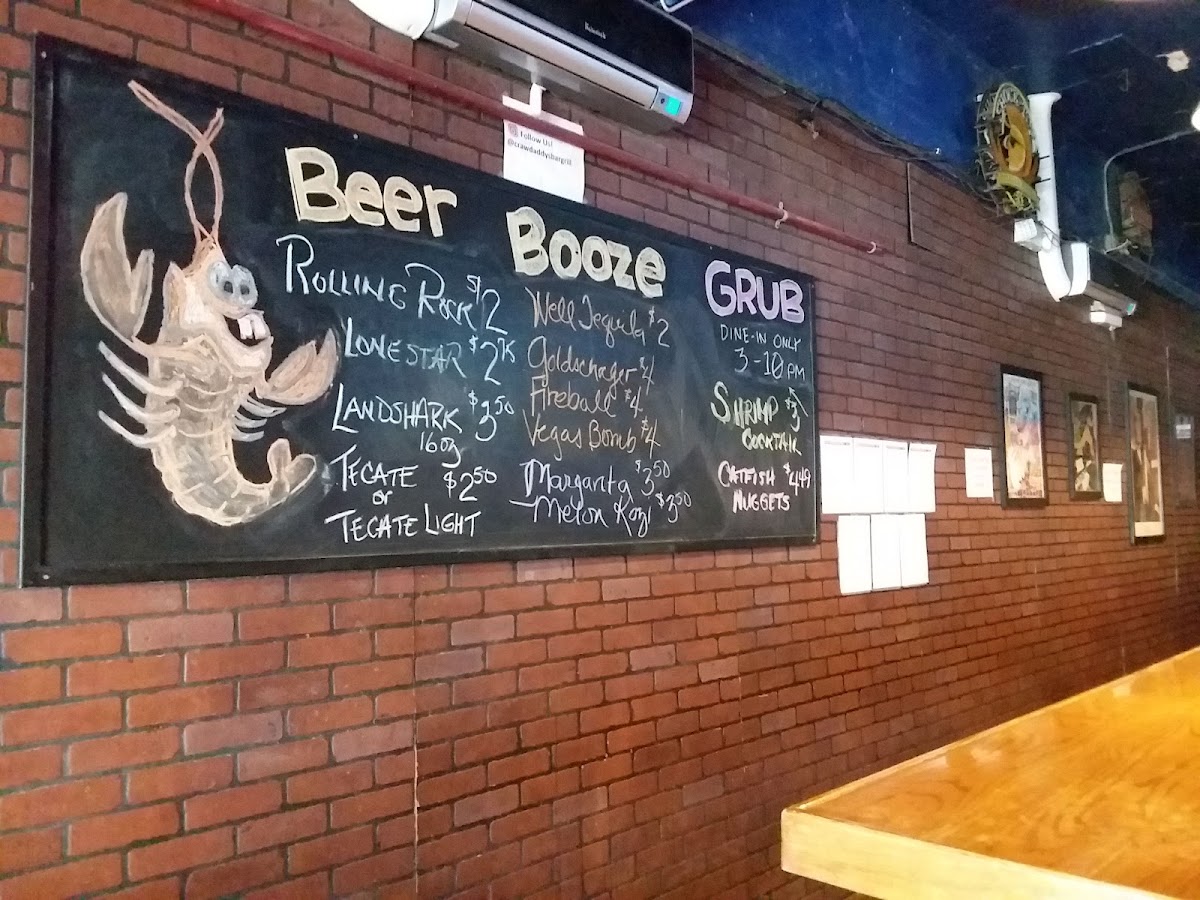 Follow Us!
@crawdaddysbargrill
Beer
ROLLING ROCK $2
LONESTAR $2
LANDSHARK $3⁵⁰
16oz
TECATE $2⁵⁰
or
TECATE LIGHT
Booze
Well Tequila $2
Goldschager $4
Fireball $4
Vegas Bomb $4
Margarita $3⁵⁰
Melon Kozi $3⁵⁰
GRUB
DINE-IN ONLY
3-10 PM
SHRIMP $3
COCKTAIL
CATFISH $4.49
NUGGETS